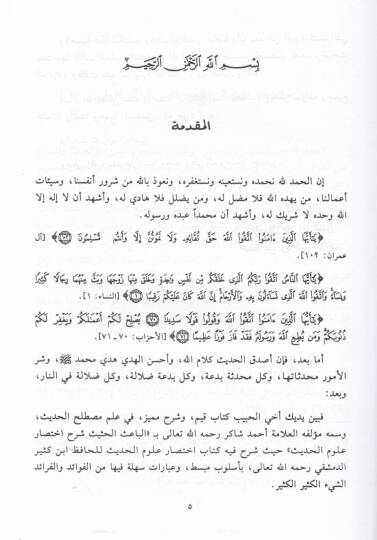 بِسْمِ اللَّهِ الرَّحْمَٰنِ الرَّحِيمِ
المقدمة
إن الحمد لله نحمده ونستعينه ونستغفره، ونعوذ بالله من شرور أنفسنا، وسيئات
أعمالنا، من يهده الله فلا مضل له، ومن يضلل فلا هادي له، وأشهد أن لا إله إلا
الله وحده لا شريك له، وأشهد أن محمداً عبده ورسوله.
﴿يَٰٓأَيُّهَا ٱلَّذِينَ ءَامَنُوا۟ ٱتَّقُوا۟ ٱللَّهَ حَقَّ تُقَاتِهِۦ وَلَا تَمُوتُنَّ إِلَّا وَأَنتُم مُّسْلِمُونَ ﴿١٠٢﴾﴾ [آل
عمران: ١٠٢].
﴿يَٰٓأَيُّهَا ٱلنَّاسُ ٱتَّقُوا۟ رَبَّكُمُ ٱلَّذِى خَلَقَكُم مِّن نَّفْسٍ وَٰحِدَةٍ وَخَلَقَ مِنْهَا زَوْجَهَا وَبَثَّ مِنْهُمَا رِجَالًا كَثِيرًا
وَنِسَآءً وَٱتَّقُوا۟ ٱللَّهَ ٱلَّذِى تَسَآءَلُونَ بِهِۦ وَٱلْأَرْحَامَ إِنَّ ٱللَّهَ كَانَ عَلَيْكُمْ رَقِيبًا ﴿١﴾﴾ [النساء: ١].
﴿يَٰٓأَيُّهَا ٱلَّذِينَ ءَامَنُوا۟ ٱتَّقُوا۟ ٱللَّهَ وَقُولُوا۟ قَوْلًا سَدِيدًا ﴿٧٠﴾ يُصْلِحْ لَكُمْ أَعْمَٰلَكُمْ وَيَغْفِرْ لَكُمْ
ذُنُوبَكُمْ وَمَن يُطِعِ ٱللَّهَ وَرَسُولَهُۥ فَقَدْ فَازَ فَوْزًا عَظِيمًا ﴿٧١﴾﴾ [الأحزاب: ٧٠ - ٧١].
أما بعد، فإن أصدق الحديث كلام الله، وأحسن الهدي هدي محمد ﷺ، وشر
الأمور محدثاتها، وكل محدثة بدعة، وكل بدعة ضلالة، وكل ضلالة في النار،
وبعد:
فبين يديك أخي الحبيب كتاب قيم، وشرح مميز، في علم مصطلح الحديث،
وسمه مؤلفه العلامة أحمد شاكر رحمه الله تعالى بـ «الباعث الحثيث شرح اختصار
علوم الحديث» حيث شرح فيه كتاب اختصار علوم الحديث للحافظ ابن كثير
الدمشقي رحمه الله تعالى، بأسلوب مبسط، وعبارات سهلة فيها من الفوائد والفرائد
الشيء الكثير الكثير.
٥